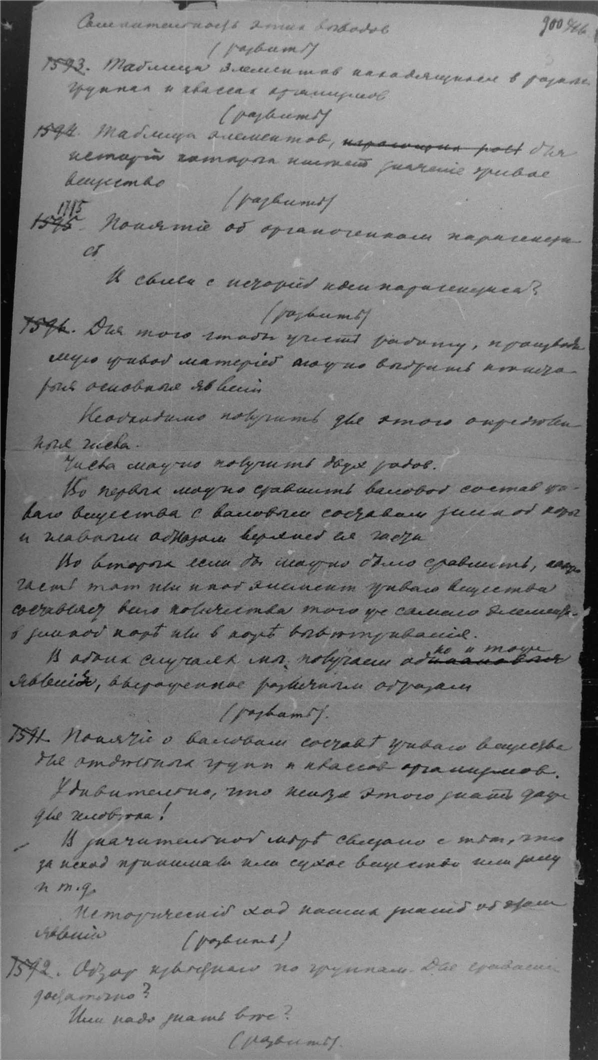 Сомнительность этих выводов
900
(развить)
1593. Таблица элементов находящихся в разных
группах и классах организмов
(развить)
1594. Таблица элементов, для
историй которых имеет значение живое
вещество
(развить)
1715
1595. Понятие об органогенном парагенези
се
И связи с историей идеи парагенезиса?
(развить)
1596. Для того чтобы учесть работу, производи
мую живой материей можно выбрать некото
рыя основныя явления
Необходимо получить для этого определен
ныя числа.
Числа можно получить двух родов.
Во первых можно сравнить валовой состав жи-
ваго вещества с валовым составом земной коры
и главным образом верхней ея части
Во вторых если бы можно было сравнить, какую
часть тот или иной элемент живаго вещества
составляет всего количества того же самаго элемента
в земной коре или в коре выветривания.
В обоих случаях мы получаем одно и тоже
явление, выраженное различным образом
(развить).
1591. Понятие о валовом составе живаго вещества
для отдельных групп и классов организмов.
Удивительно, что нельзя этого знать даже
для человека!
В значительной мере связано с тем, что
за исход принимали или сухое вещество или золу
и т.д.
Исторический ход наших знаний об этом
явлении (развить)
1592. Обзор известнаго по группам. Две
достаточно?
Или надо знать все?
(развить).